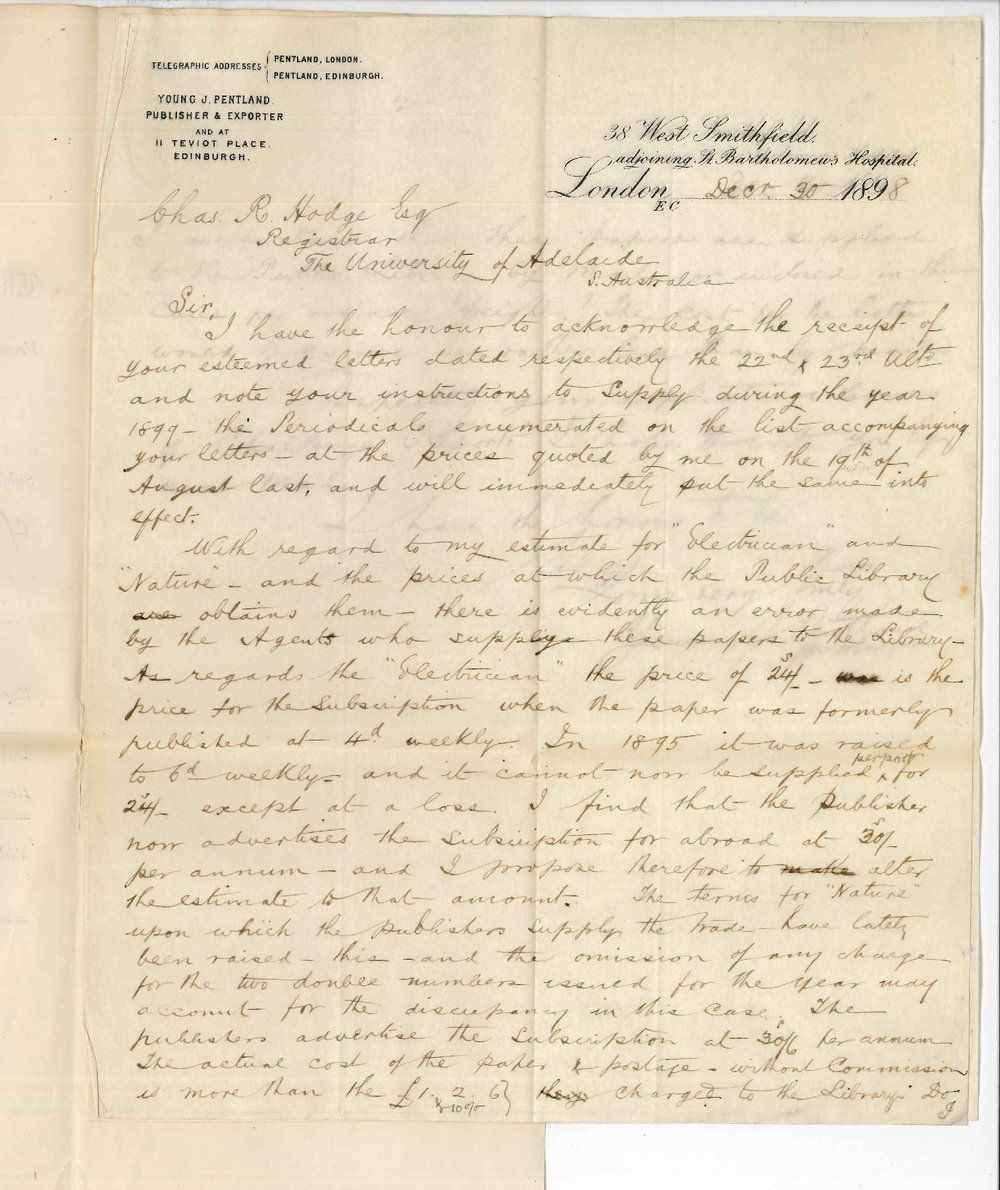 TELEGRAPHIC ADDRESSES { PENTLAND, LONDON.
PENTLAND, EDINBURGH.
YOUNG J. PENTLAND.
PUBLISHER & EXPORTER
AND AT
11 TEVIOT PLACE,
EDINBURGH.
38 West Smithfield.
adjoining St. Bartholomew's Hospital.
London EC Decr 30 1898
Chas. R. Hodge Esq
Registrar
The University of Adelaide
S. Australia
Sir,
I have the honour to acknowledge the receipt of
your esteemed letters dated respectively the 22nd & 23rd Ulto
and note your instructions to supply during the year
1899 – the Periodicals enumerated on the list accompanying
your letters – at the prices quoted by me on the 19th of
August last, and will immediately put the same into
effect.
With regard to my estimate for "Electrician" and
"Nature" – and the prices at which the Public Library
are obtains them – there is evidently an error made
by the Agents who supply these papers to the Library –
As regards the "Electrician" the price of 24s/- was is the
price for the subscription when the paper was formerly
published at 4d weekly. In 1895 it was raised
to 6d weekly – and it cannot now be supplied per post for
24s/- except at a loss. I find that the Publisher
now advertises the subscription for abroad at 30s/-
per annum – and I propose therefore to make alter
the estimate to that amount. The terms for "Nature"
upon which the publishers supply the trade – have lately
been raised – this – and the omission of any charge
for the two double numbers issued for the year may
account for the discrepancy in this case. The
publishers advertise the subscription at 30s/6 per annum
The actual cost of the paper & postage – without Commission
is more than the £1. 2. 6 } they charged to the Library. Do
10%
I